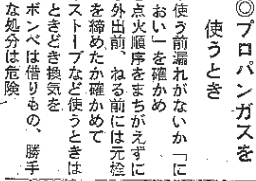 ◎プロパンガスを
使うとき
使う前漏れがないか「に
おい」を確かめ
点火順序をまちがえずに
外出前、ねる前には元栓
を締めたか確かめて
ストーブなど使うときは
ときどき換気を
ボンベは借りもの、勝手
な処分は危険